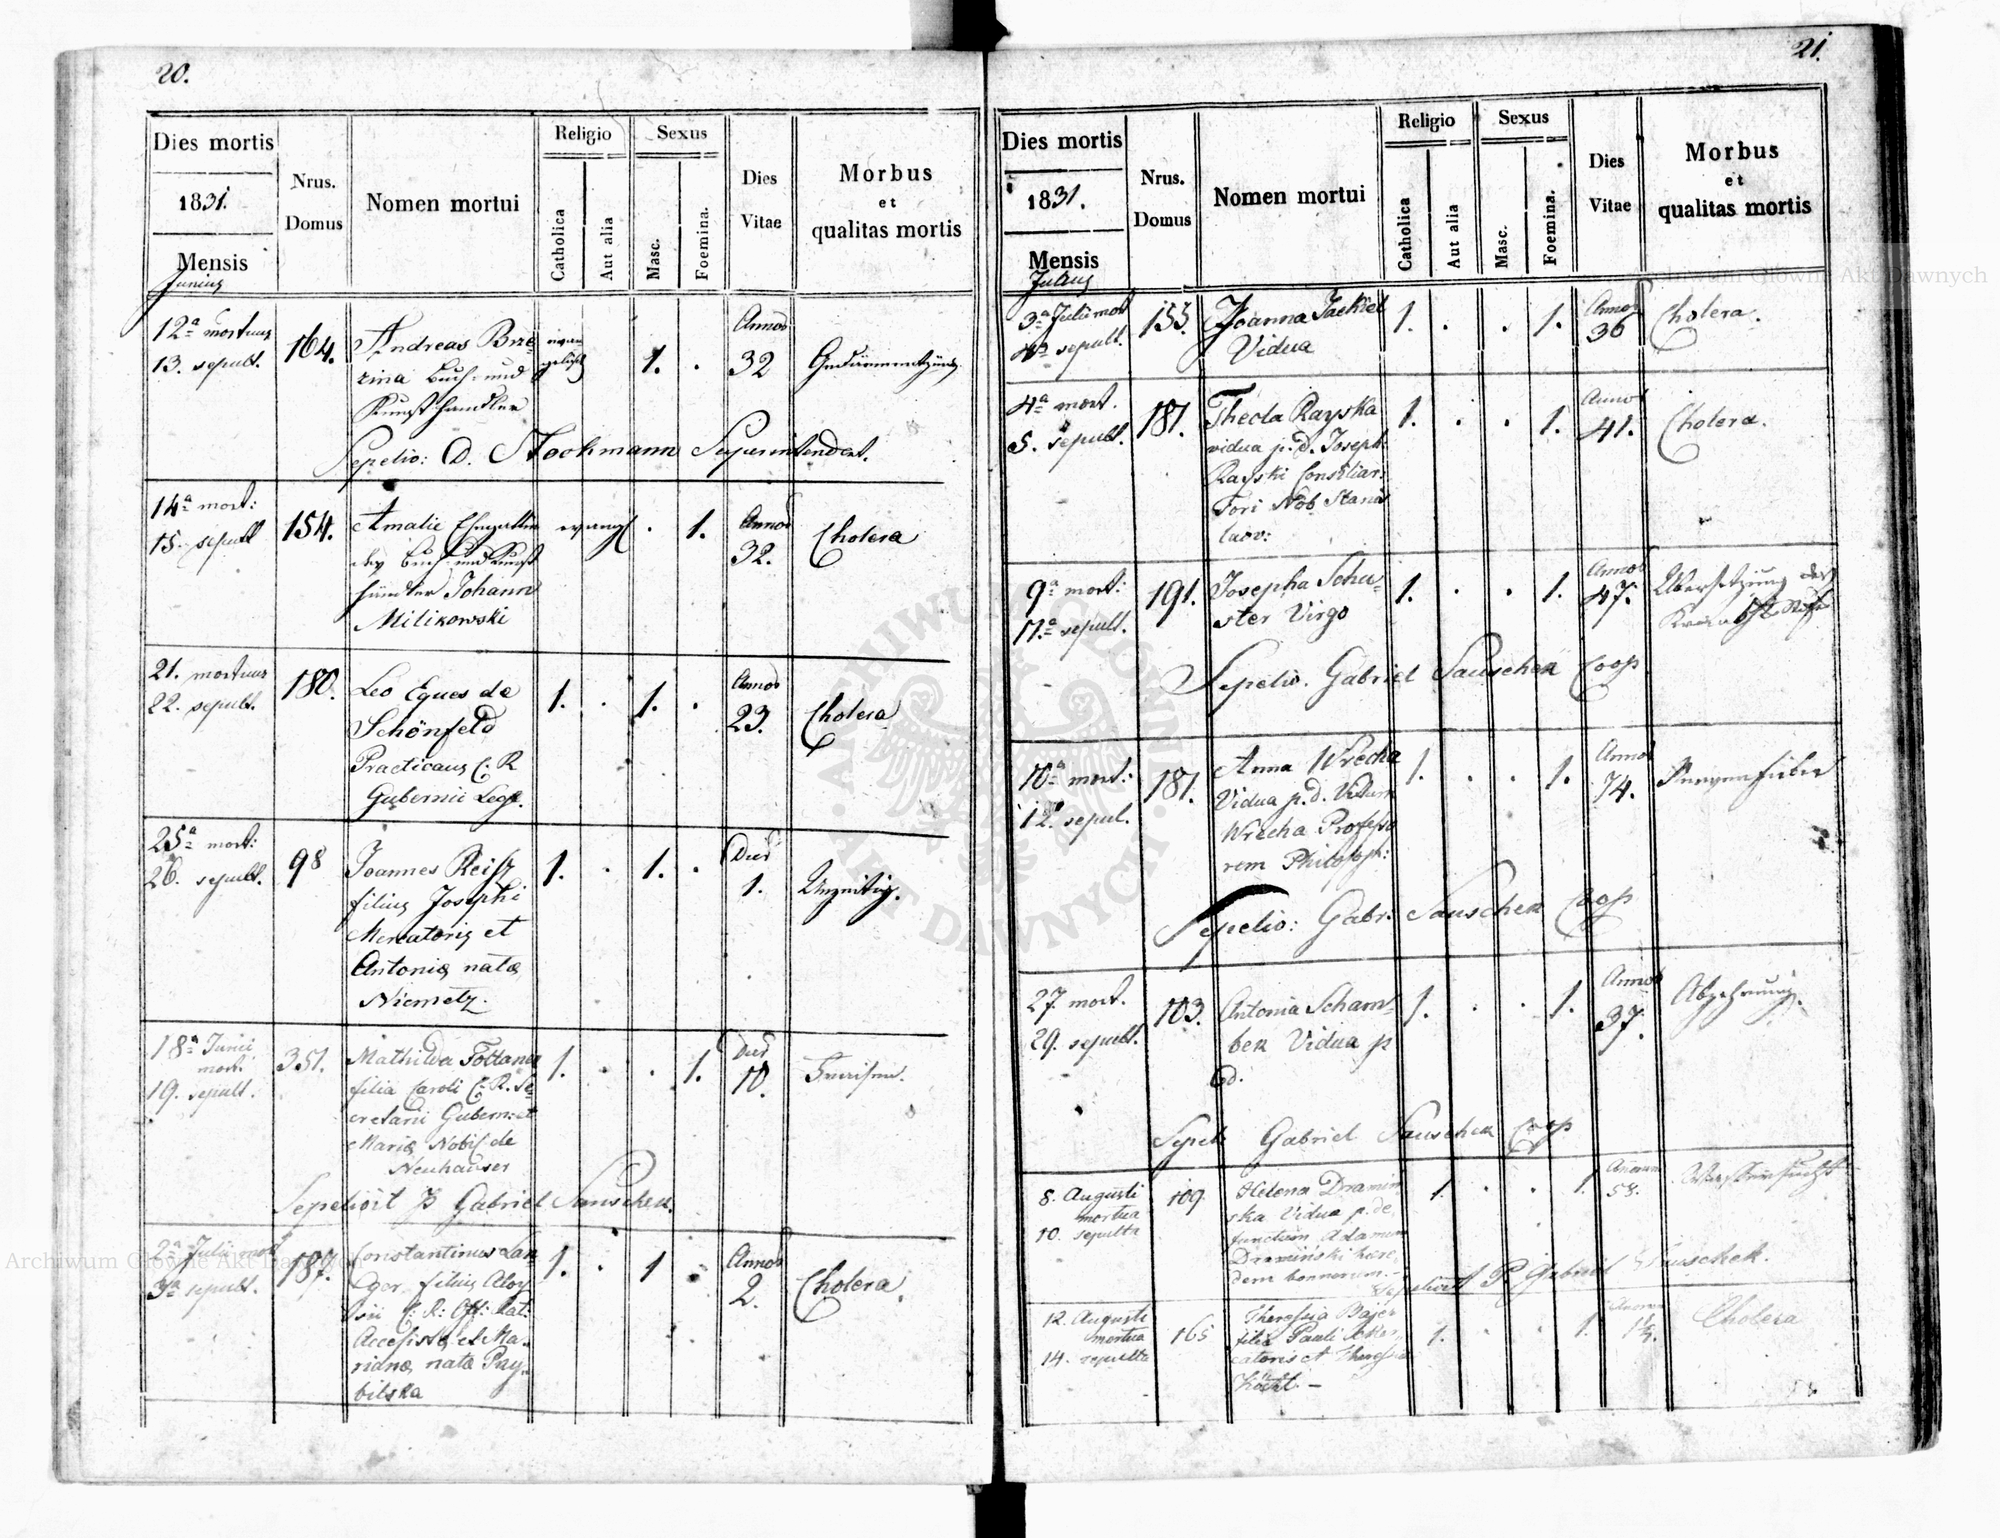 20.
Dies mortis
1831.
Mensis
Junius
Nrus.
Domus
Nomen mortui
Religio
Catholica
Aut alia
Sexus
Masc.
Foemina.
Dies
Vitae
Morbus
et
qualitas mortis
12a mortuus
13. sepult.
164.
Andreas Brze
zina Buch- und
Kunsthandler
evan
gelisch
1.
.
Annor
32
Gedärmentzünd.
Sepelio: D. Stockmann Superintendent.
14a mort:
15. sepult
154.
Amalie Ehegattin
des Buch- und Kunst
händler Johann
Milikowski
evangl
.
1.
Annor
32.
Cholera
21. mortuus
22. sepult.
180.
Leo Eques de
Schönfeld
Practicans C. R.
Gubernii Legt.
1.
.
1.
.
Annor
23.
Cholera
25a mort:
26. sepult.
98
Joannes Reisz
filius Josephi
Mercatoris et
Antonia nata
Niemetz.
1.
.
1.
.
Dier
1.
Unzeitig.
18a Junii
mort.
19. sepult.
351.
Mathilda Tottaner
filia Caroli C. R. Se
cretarii Gubern: et
Maria Nobil de
Neuhauser
1.
.
.
1.
Dier
10.
Fraisen.
Sepelivit P Gabriel Sauschek.
2a Julii mort
3a sepult.
187.
Constantinus Lan
ger filius Aloy
sii C: R: Off: Rat:
Accessista et Ma-
rianna nata Pay-
bilska
1.
.
1
.
Annor
2.
Cholera.
21.
Dies mortis
1831.
Mensis
Julius
Nrus.
Domus
Nomen mortui
Religio
Catholica
Aut alia
Sexus
Masc.
Foemina.
Dies
Vitae
Morbus
et
qualitas mortis
3a Julii mort
4a sepult.
155.
Joanna Jackiel
Vidua
1.
.
.
1.
Annor
36
Cholera.
4a mort.
5. sepult.
181.
Thecla Rayska
vidua p. d. Joseph
Rayski Consiliar:
Fori Nob. Stanis
laov:
1.
.
.
1.
Annor
41.
Cholera.
9a mort:
11.a sepult.
191.
Josepha Schu-
ster Virgo
1.
.
.
1.
Annor
47.
Übersetzung des
Sepelio. Gabriel Sauschek Coop
10a mort:
12. sepul.
181.
Anna Wrecha
Vidua p. d. Vidum
Wrecha Professo
rem Philosoph:
1.
.
.
1.
Annor
74.
Nervenfieber
Sepelio: Gabr: Sauschek Coop
27. mort.
29. sepult.
103.
Antonia Scham-
bek Vidua p
d.
1.
.
.
1.
Annor
37.
Abzehrung.
Sepeli Gabriel Sauschek Coop
8. Augusti
mortua
10. sepulta
109
Helena Dramin
ska Vidua p. de
functum Adamum
Dramiński haere
dem bonnorum.-
1.
.
.
1.
Annorum
58.
Wassersucht
Sepelivit P. Gabriel Sauschek.
12. Augusti
mortua
14. sepulta
165
Theressia Bajer
filia Pauli Mer-
catoris et Theressia
1.
.
.
1.
Cholera
Archiwum Główne Akt Dawnych
Archiwum Główne Akt Dawnych
ARCHIWUM GŁÓWNE
AKT DAWNYCH